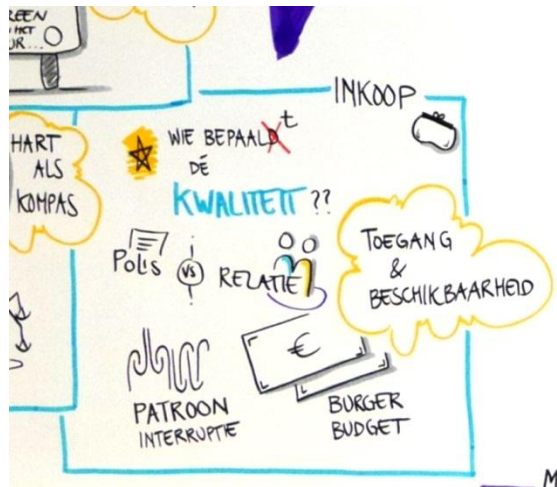 REEN
HET
UR...
INKOOP
HART
ALS
KOMPAS
WIE BEPAALD t
DÉ
KWALITEIT ??
POLIS
VS
RELATIE
TOEGANG
&
BESCHIKBAARHEID
€
PATROON
INTERRUPTIE
BURGER
BUDGET
M